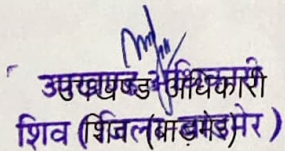 उपखण्ड अधिकारी
शिव (जिला बाड़मेर)